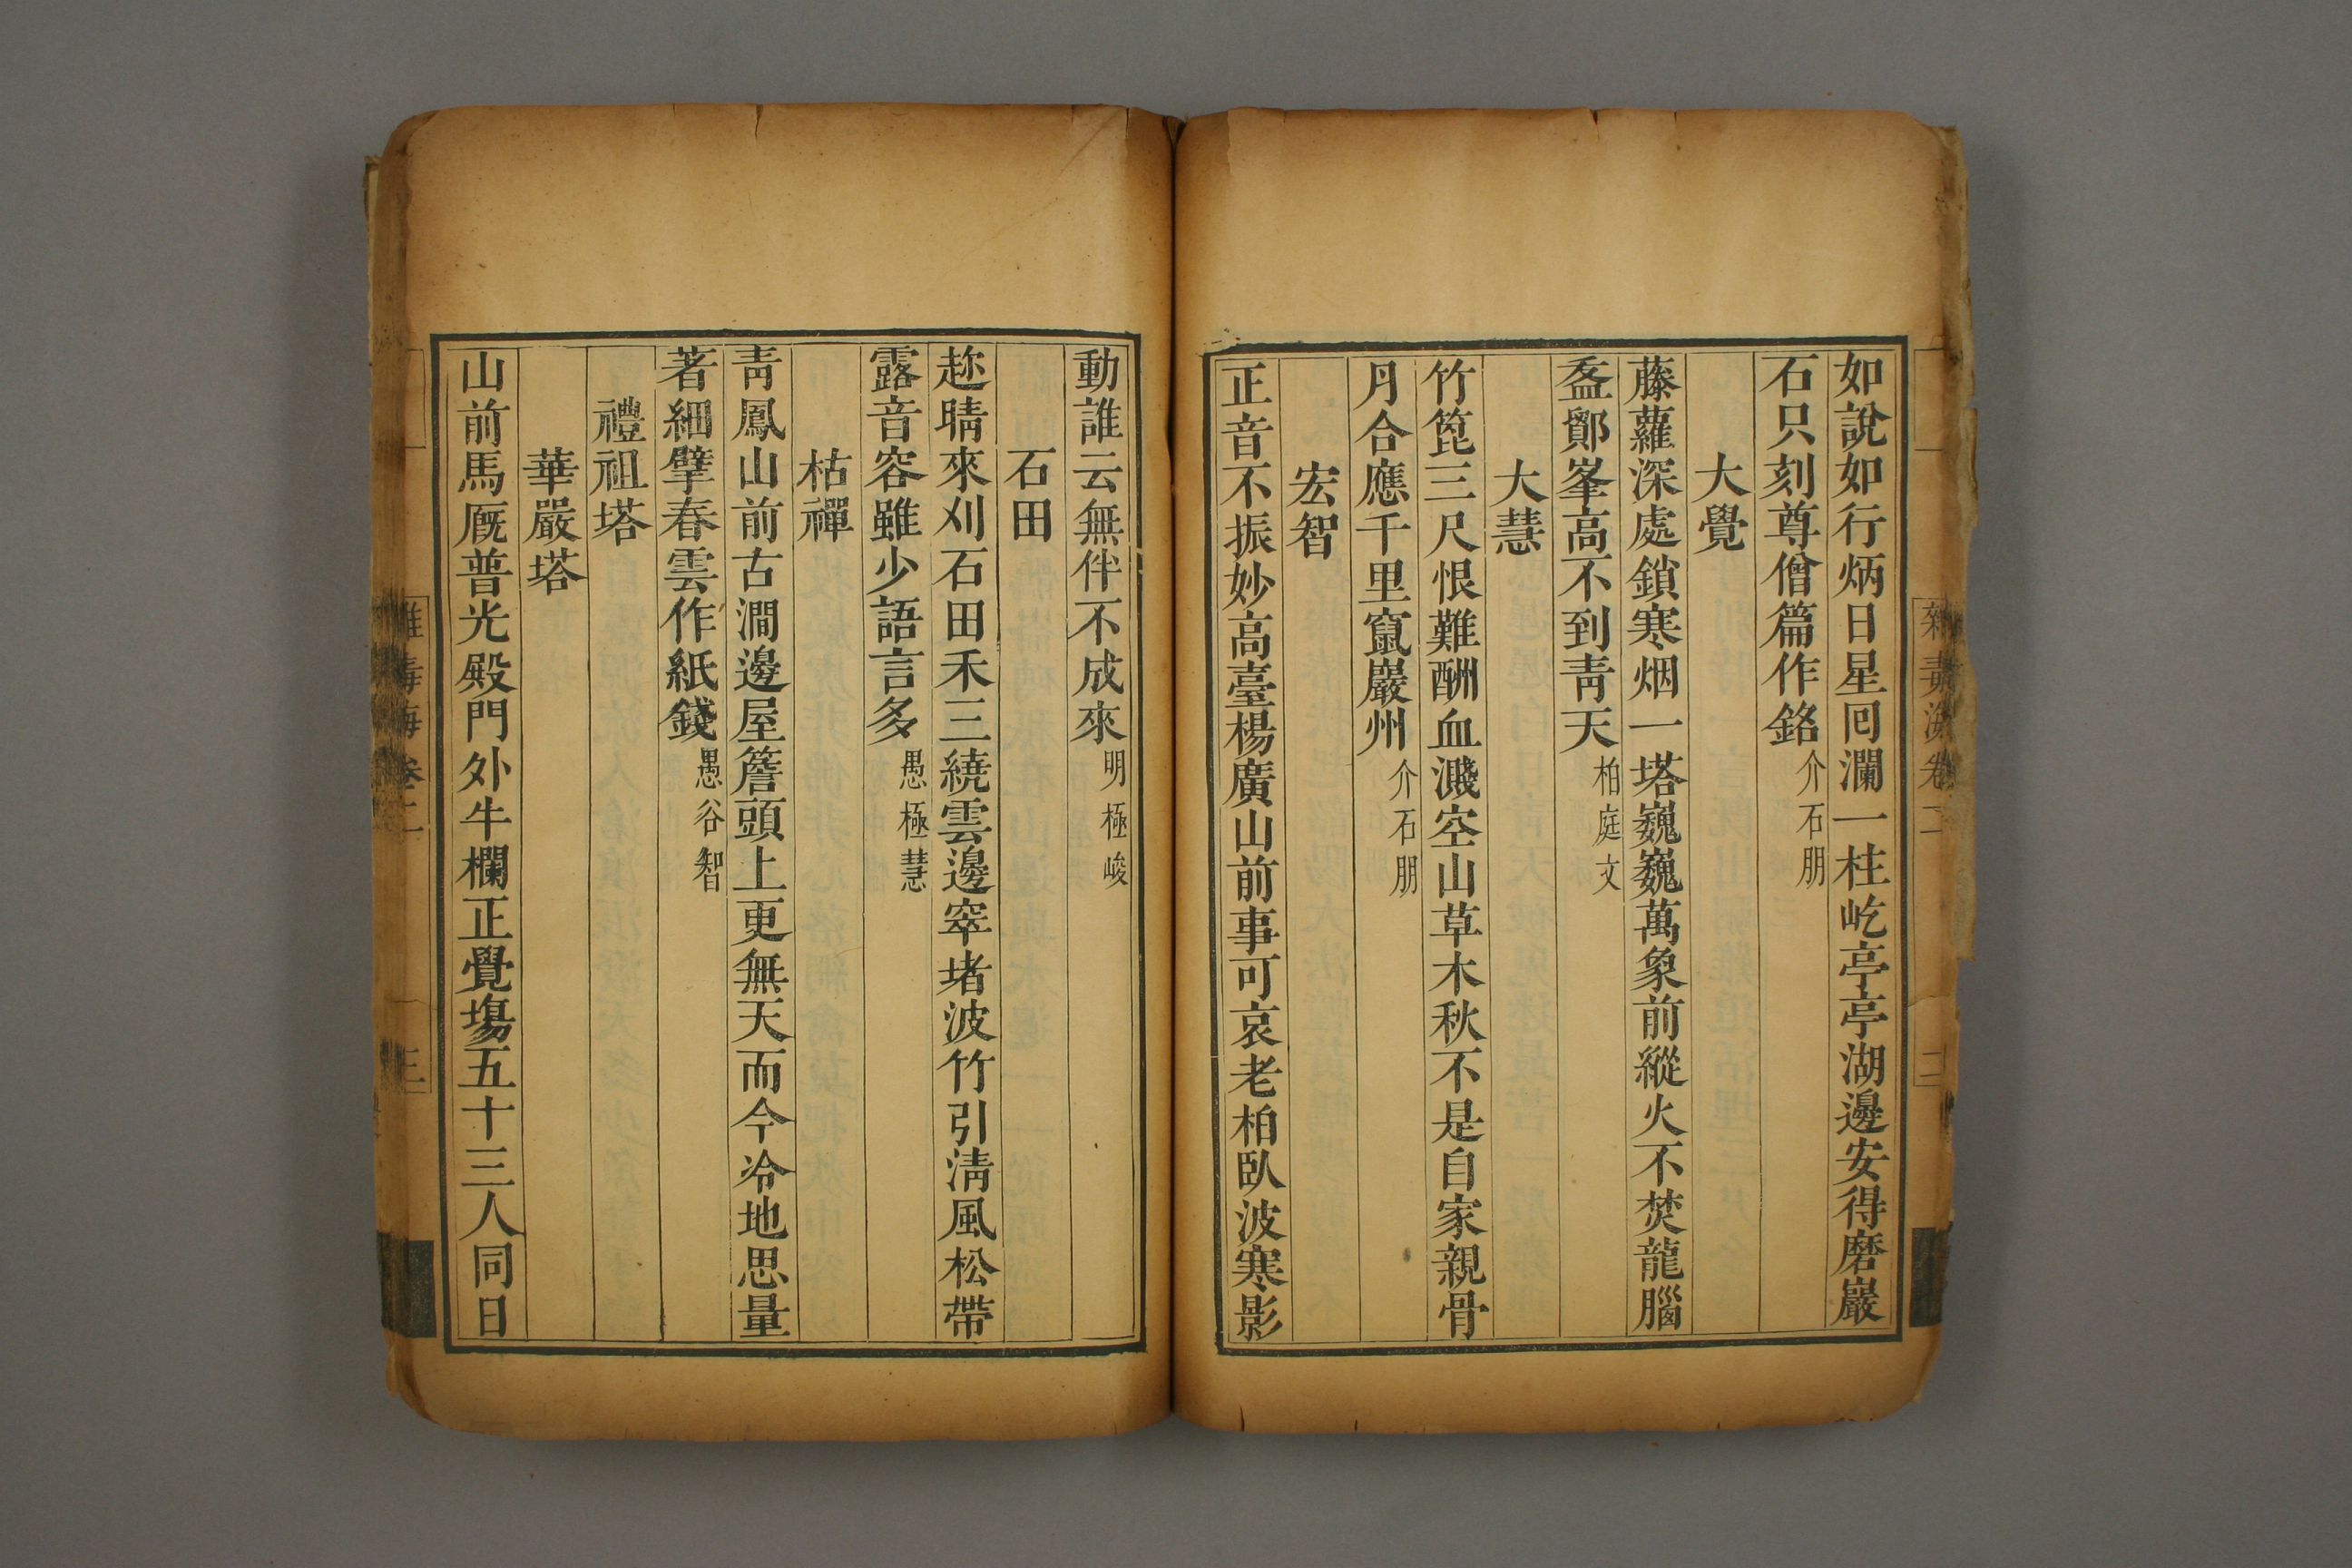 如說如行炳日星囘瀾一柱屹亭亭湖邊安得磨巖
石只刻尊僧篇作銘介石朋
大覺
藤蘿深處鎖寒烟一塔巍巍萬象前縱火不焚龍腦
盋鄮峯高不到靑天柏庭文
大慧
竹篦三尺恨難酬血濺空山草木秋不是自家親骨
月合應千里竄巖州介石朋
宏智
正音不振妙高臺楊廣山前事可哀老柏臥波寒影
動誰云無伴不成來明極峻
石田
趂晴來刈石田禾三繞雲邊窣堵波竹引淸風松帶
露音容雖少語言多愚極慧
枯禪
靑鳳山前古澗邊屋簷頭上更無天而今冷地思量
著細擘春雲作紙錢愚谷智
禮祖塔
華嚴塔
山前馬厩普光殿門外牛欄正覺塲五十三人同日